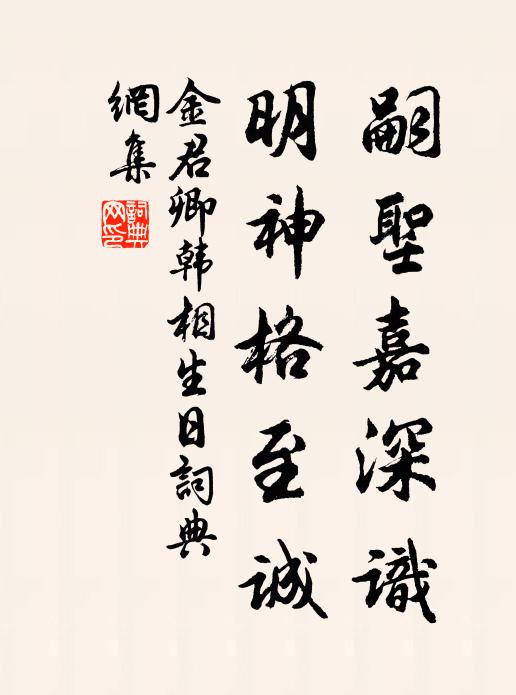 嗣聖嘉深識
明神格至誠
金君卿韩相生日詞典
網集
詞典
网印